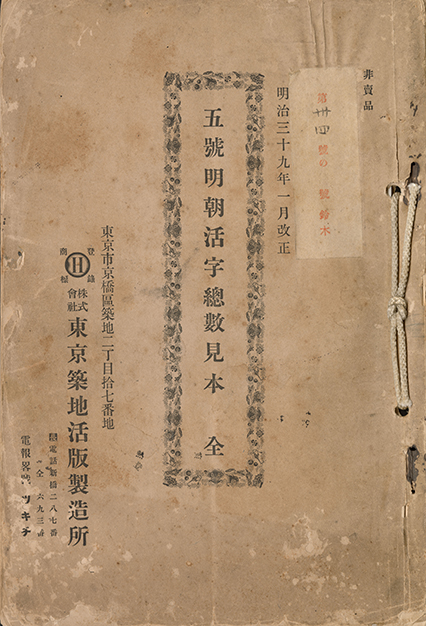 非賣品
明治三十九年一月改正
五號明朝活字總數見本 全
東京市京橋區築地二丁目拾七番地
登錄
商標
H
株式
會社
東京築地活版製造所
電話新橋二八七番
全 六九三番
電報畧號 ツキチ